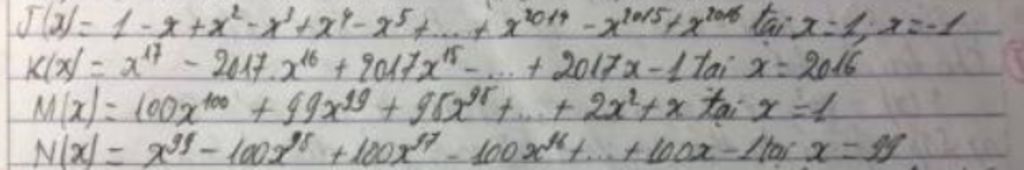 J(x) = 1 - x + x² - x³ + x⁴ - x⁵ + ... + x²⁰¹⁴ - x²⁰¹⁵ + x²⁰¹⁶ tại x = 1; x = -1
K(x) = x¹⁷ - 2017.x¹⁶ + 2017x¹⁵ - ... + 2017x - 1 tại x = 2016
M(x) = 100x¹⁰⁰ + 99x⁹⁹ + 98x⁹⁸ + ... + 2x² + x tại x = 1
N(x) = x⁹⁹ - 100x⁹⁸ + 100x⁹⁷ - 100x⁹⁶ + ... + 100x - 1 tại x = 99